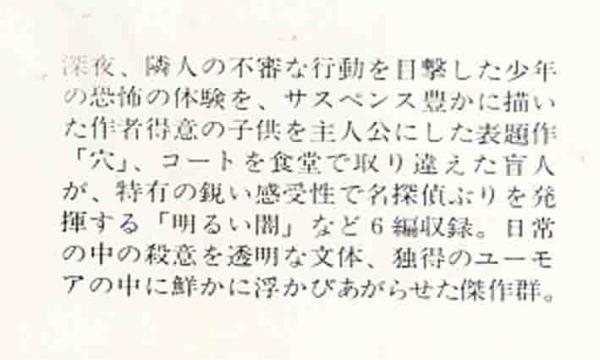 深夜、隣人の不審な行動を目撃した少年
の恐怖の体験を、サスペンス豊かに描い
た作者得意の子供を主人公にした表題作
「穴」、コートを食堂で取り違えた盲人
が、特有の鋭い感受性で名探偵ぶりを発
揮する「明るい闇」など6編収録。日常
の中の殺意を透明な文体、独得のユーモ
アの中に鮮かに浮かびあがらせた傑作群。